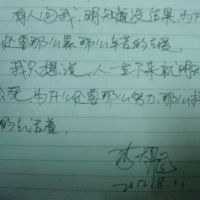 有人问我,明知道没结果,为什
还要那么累,那么辛苦的去
我只想说,人一生下来就明知
会死,为什么还要那么努力,那么
的去活着
2012.8.